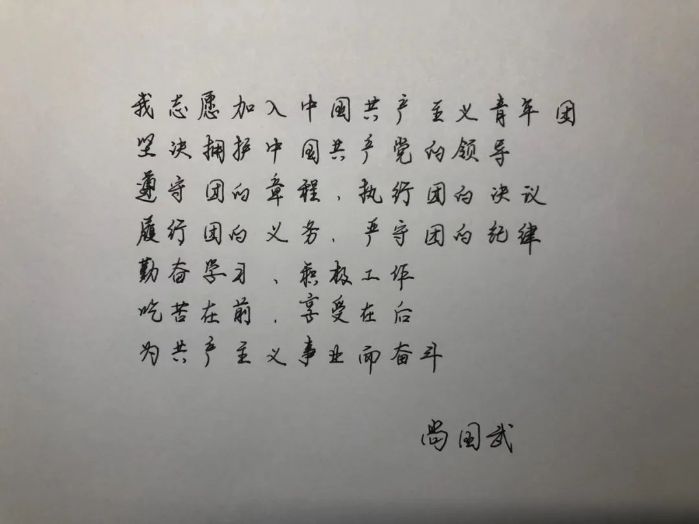 我志愿加入中国共产主义青年团
坚决拥护中国共产党的领导
遵守团的章程,执行团的决议
履行团的义务,严守团的纪律
勤奋学习、积极工作
吃苦在前,享受在后
为共产主义事业而奋斗
尚国武